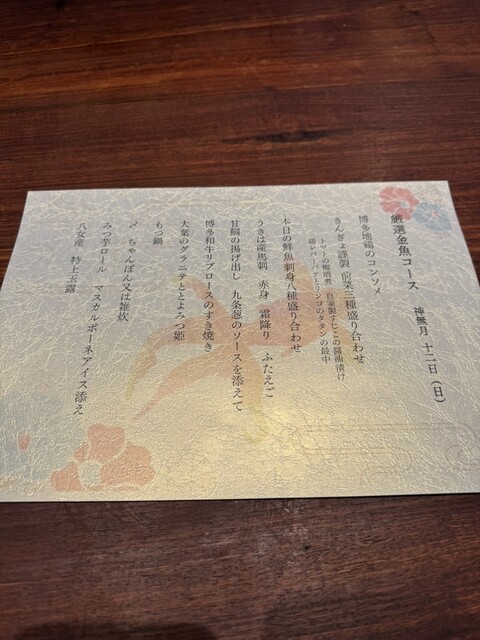 厳選金魚コース
神無月 十二日（日）
博多地鶏のコンソメ
きんぎょ謹製 前菜三種盛り合わせ
トマトの梅酒煮 自家製すじこの醤油漬け
鶏レバーパテとリンゴのタタンの最中
本日の鮮魚刺身八種盛り合わせ
うきは産馬刺 赤身 霜降り ふたえご
甘鯛の揚げ出し 九条葱のソースを添えて
博多和牛リブロースのすき焼き
大葉のグラニテととよみつ姫
もつ鍋
〆 ちゃんぽん又は雑炊
みつ芋ロール マスカルポーネアイス添え
八女産 特上玉露